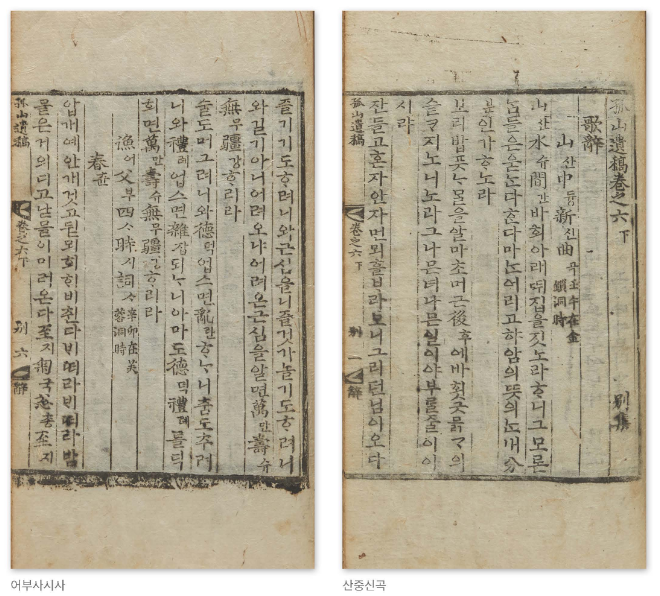 孤山遺稿卷之六 下 別集
歌辭
山산中듕新신曲곡 壬午在金鎖洞時
山산水슈間간바회아래뛰집을짓노라ᄒᆞ니그모론
ᄂᆞᆷ들은욷ᄂᆞᆫ다ᄒᆞᆫ다마ᄂᆞᆫ어리고햐암의ᄠᅳᆺ의ᄂᆞᆫ내分
분인가ᄒᆞ노라
보리밥풋ᄂᆞ믈을알마초머근後후에바횟긋믉ᄀᆞ의
슬ᄏᆞ지노니노라그나믄녀나믄일이야부ᄅᆞᆯ줄이이
시랴
잔들고혼자안자먼뫼흘ᄇᆞ라보니그리던님이오다
孤山遺稿 卷之六 下 別 一 辭
산중신곡
즐기기도ᄒᆞ려니와근심을니즐것가놀기도ᄒᆞ려니
와길기아니어려오냐어려온근심을알면萬만壽슈
無무疆강ᄒᆞ리라
술도머그려니와德덕업스면亂란ᄒᆞᄂᆞ니춤도추려
니와禮례업스면雜잡되ᄂᆞ니아마도德덕禮례ᄅᆞᆯ딕
희면萬만壽슈無무疆강ᄒᆞ리라
漁어父부四ᄉᆞ時시詞ᄉᆞ 辛卯在芙蓉洞時
春츈
압개예안개것고뒫뫼희ᄒᆡ비췬다ᄇᆡᄠᅥ라ᄇᆡᄠᅥ라밤
믈은거의디고낟믈이미러온다至지匊국悤총至지
孤山遺稿 卷之六 下 別 六 辭
어부사시사